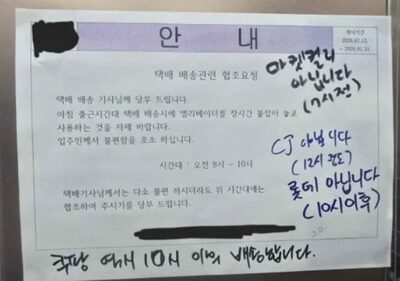 안 내
게시기간
택배 배송관련 협조요청
택배 배송 기사님께 당부 드립니다.
아침 출근시간대 택배 배송시에 엘리베이터를 장시간 붙잡아 놓고
사용하는 것을 자제 바랍니다.
입주민께서 불편함을 호소 하십니다.
시간대 : 오전 8시 ~ 10시
택배기사님께서는 다소 불편 하시더라도 위 시간대에는
협조하여 주시기를 당부 드립니다.
마켓컬리
아닙니다
(7시전)
CJ 아닙니다
(12시 완료)
롯데 아닙니다
(10시이후)
쿠팡 역시 10시 이후 배송합니다.